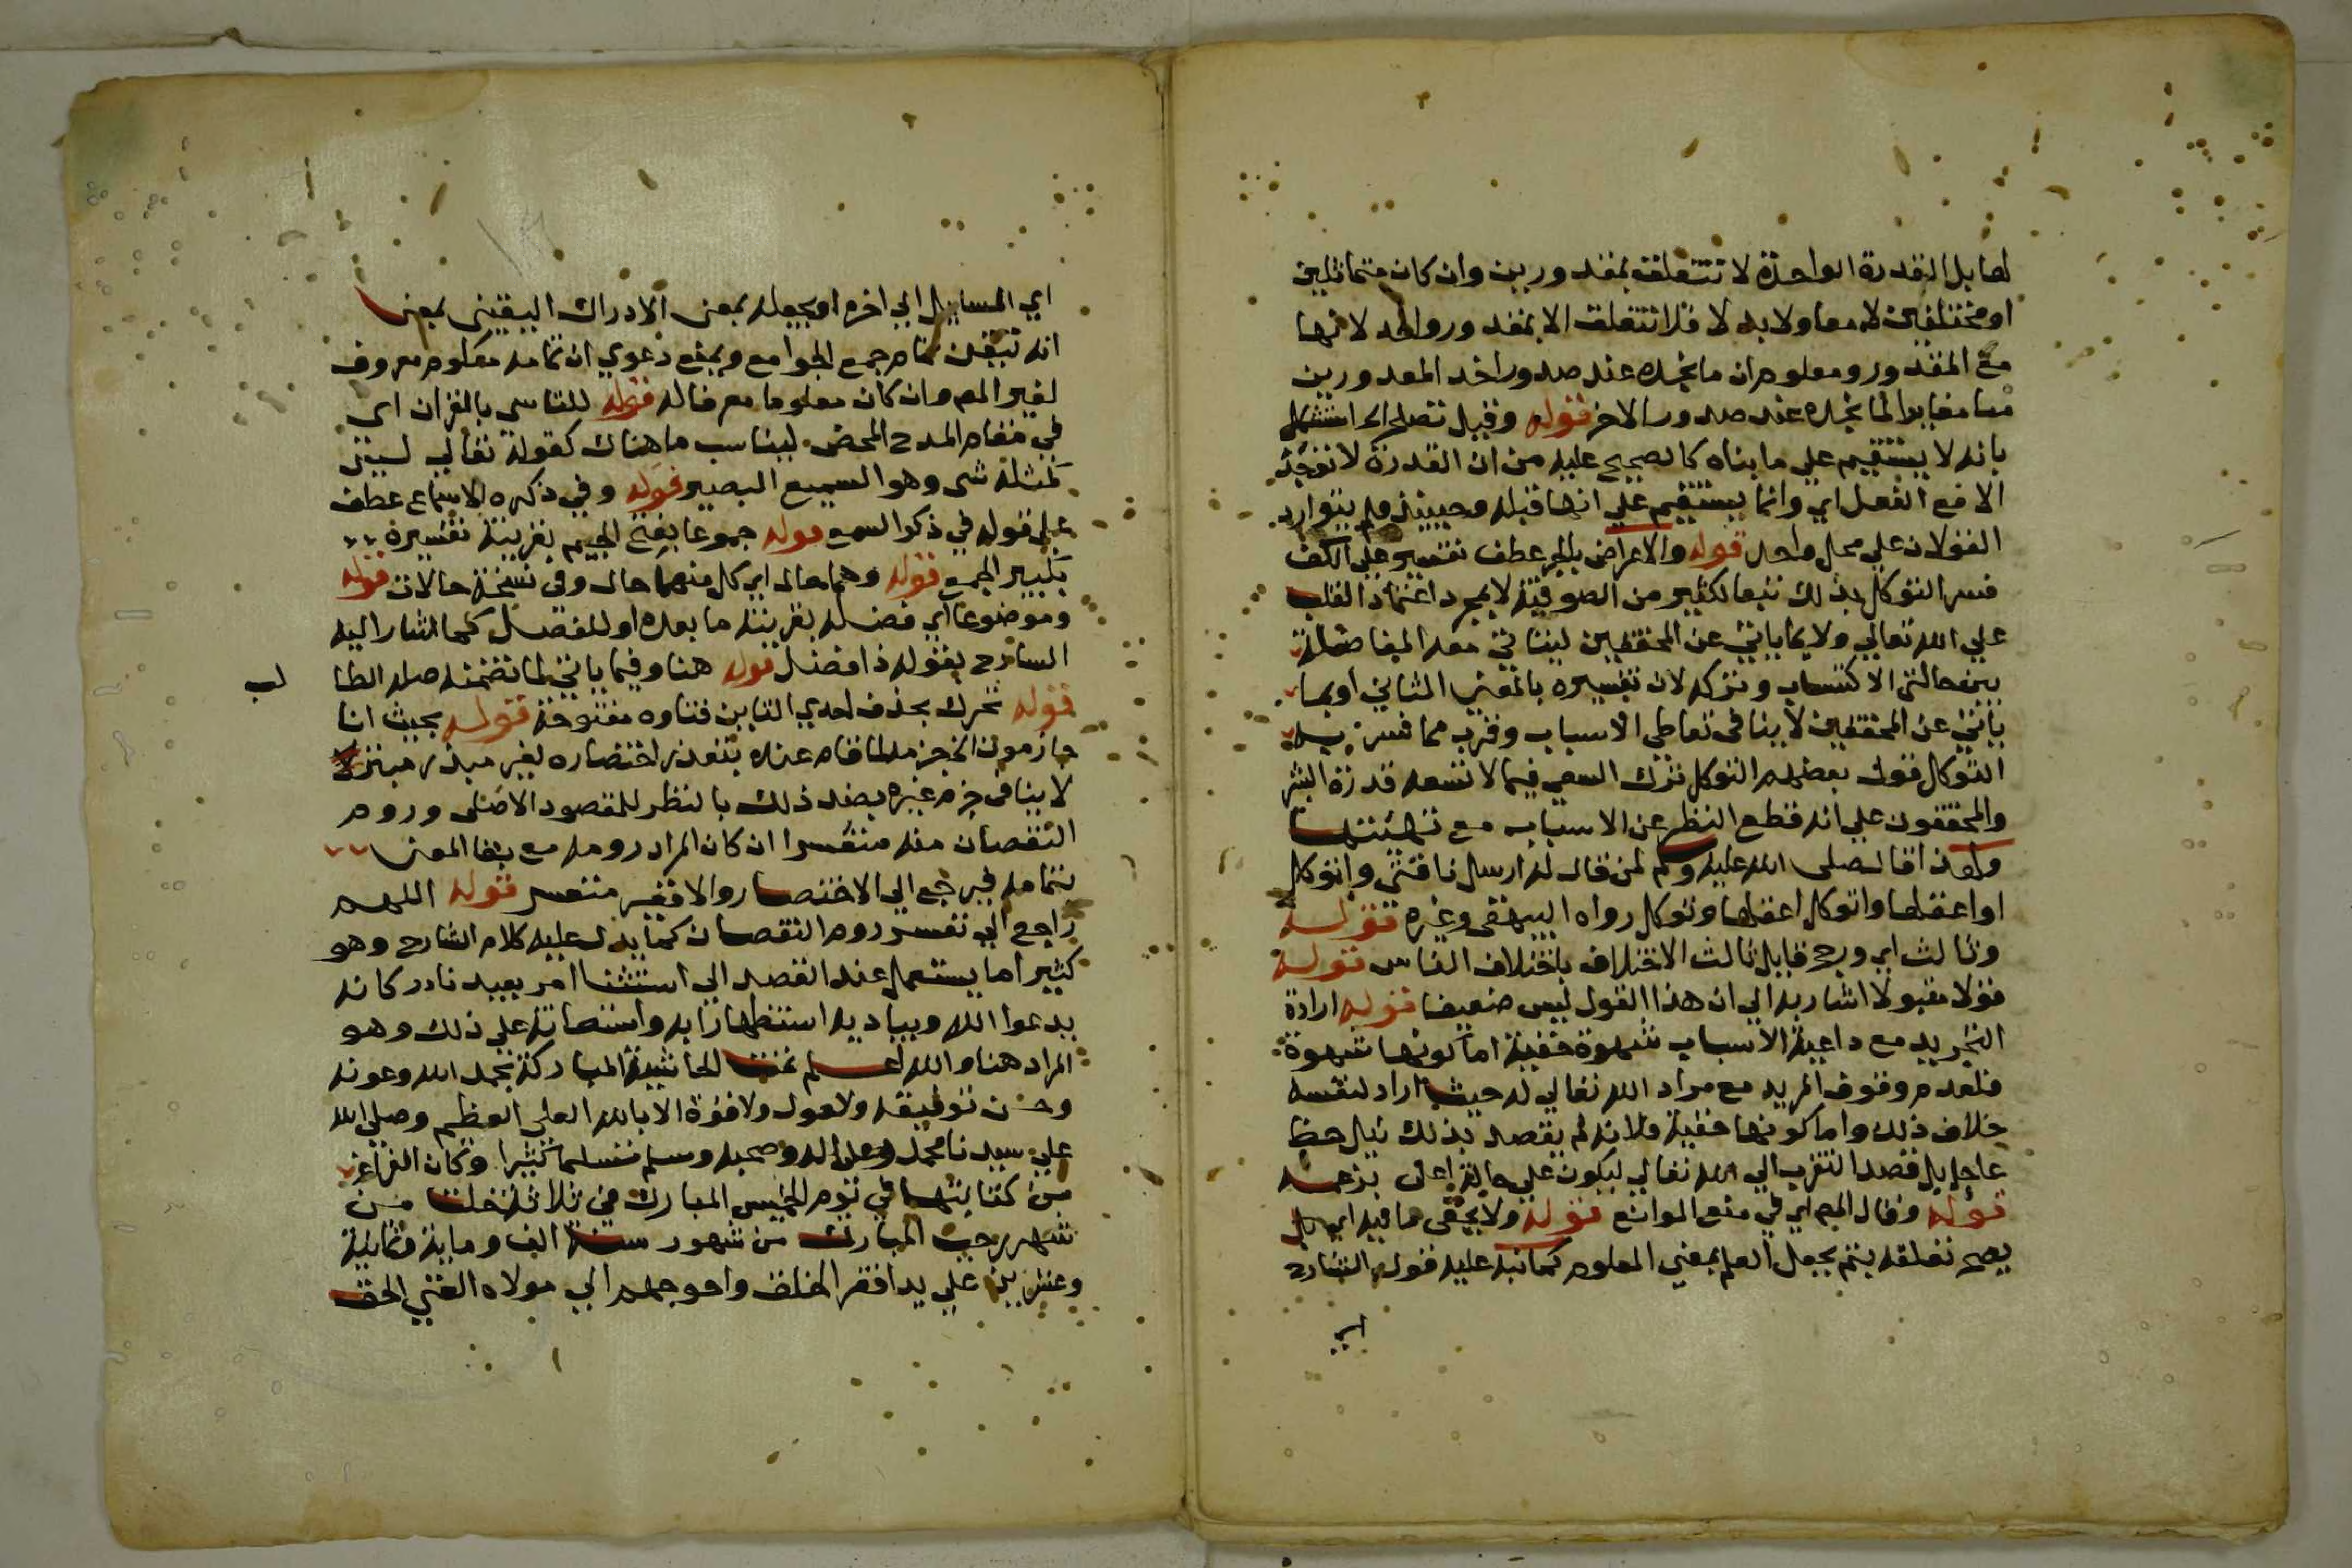 لها بل القدرة الواحدة لا تتعلق بمقدورين وان كان متماثلين
او مختلفين لا معا ولا بدلا فلا تتعلق الا بمقدور واحد لانها
مع المقدور ومعلوم ان ما نجده عند صدور احد المقدورين
منا مغاير لما نجده عند صدور الاخر قوله وقيل تصلح الخ استشكل
بانه لا يستقيم علي ما بناه كالصحيح عليه من ان القدرة لا توجد
الا مع الفعل اي وانما يستقيم علي انها قبله وحينيذ فلم يتوارد
القولان علي محل واحد قوله والاعراض بالجر عطف تفسير علي الكف
فسر التوكل بذلك تبعا لكثير من الصوفية لا بمجرد اعتماد القلب
علي الله تعالي ولا بما ياتي عن المحققين ليتاتي معه المفاضلة
بين حالتي الاكتساب وتركه لان تفسيره بالمعني الثاني او بما
ياتي عن المحققين لا ينافي تعاطي الاسباب وقرب مما فسر به
التوكل قول بعضهم التوكل ترك السعي فيما لا تسعه قدرة البشر
والمحققون علي انه قطع النظر عن الاسباب مع تهيئتها
ولهذا قال صلى الله عليه وسلم لمن قال له ارسل ناقتي واتوكل
او اعقلها واتوكل اعقلها وتوكل رواه البيهقي وغيره قوله
وثالث اي ورجح قايل ثالث الاختلاف باختلاف الناس قوله
قولا مقبولا اشار به الي ان هذا القول ليس ضعيفا قوله ارادة
التجريد مع داعية الاسباب شهوة خفية اما كونها شهوة
فلعدم وقوف المريد مع مراد الله تعالي له حيث اراد لنفسه
خلاف ذلك واما كونها خفية فلانه لم يقصد بذلك نيل حظ
عاجل بل قصد التقرب الي الله تعالي ليكون علي حالة اعلى بزعمه
قوله وقال المص اي في منع الموانع قوله ولا يخفى ما فيه اي بل
يصح تعلقه بتم بجعل العلم بمعني المعلوم كما نبه عليه قول الشارح
اي
اي المسايل الي اخره او بجعله بمعنى الادراك اليقيني بمعنى
انه تيقن تمام جمع الجوامع ويمنع دعوي ان تمامه معلوم معروف
لغير المص وان كان معلوما معرفا له قوله للتاسي بالقران اي
في مقام المدح المحض ليناسب ما هناك كقوله تعالي ليس
كمثله شى وهو السميع البصير قوله وفي ذكره الاسماع عطف
على قوله في ذكر السمع قوله جموعا بفتح الجيم بقرينة تفسيره
بكثير الجمع قوله وهما حال اي كل منهما حال وفي نسخة حالان قوله
وموضوعا اي فضله بقرينة ما بعده او للفضل كما اشار اليه
الشارح بقوله ذا فضل قوله هنا وفيما ياتي لما تضمنه صله الظا
لب
قوله تحرك بحذف احدي التاين فتاوه مفتوحة قوله بحيث انا
جازمون الجزم لما قام عنده بتعذر اختصاره لغير مبذر مبتر
لا ينافي جزم غيره بضد ذلك بالنظر للمقصود الاصلى وروم
النقصان منه متعسرا ان كان المراد رومه مع بقا المعنى
بتمامه فيرجع الي الاختصار والا فغير متعسر قوله اللهم
راجع الي تعسر روم النقصان كما يدل عليه كلام الشارح وهو
كثيرا ما يستعمل عند القصد الي استثنا امر بعيد نادر كانه
يدعوا الله ويناديه استظهارا به واستعانة علي ذلك وهو
المراد هنا والله اعلم تمت الحاشية المباركة بحمد الله وعونه
وحسن توفيقه ولا حول ولا قوة الا بالله العلى العظيم وصلى الله
علي سيدنا محمد وعلى اله وصحبه وسلم تسليما كثيرا وكان الفراغ
من كتابتها في يوم الخميس المبارك في ثلاثة خلت من
شهر رجب المبارك من شهور سنة الف وماية وثمانية
وعشرين علي يد افقر الخلق واحوجهم الي مولاه الغني الحق